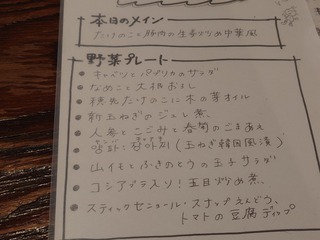 本日のメイン
たけのこと豚肉の生姜炒め中華風
野菜プレート
キャベツとパプリカのサラダ
なめこと大根おろし
穂先たけのこに木の芽オイル
新玉ねぎのジュレ煮、
人参とこごみと春菊のごまあえ
양파 장아찌 (玉ねぎ韓国風漬)
山イモとふきのとうの玉子サラダ
コシアブラ入り！五目炒め煮、
スティックセニョール・スナップえんどう、
トマトの豆腐ディップ